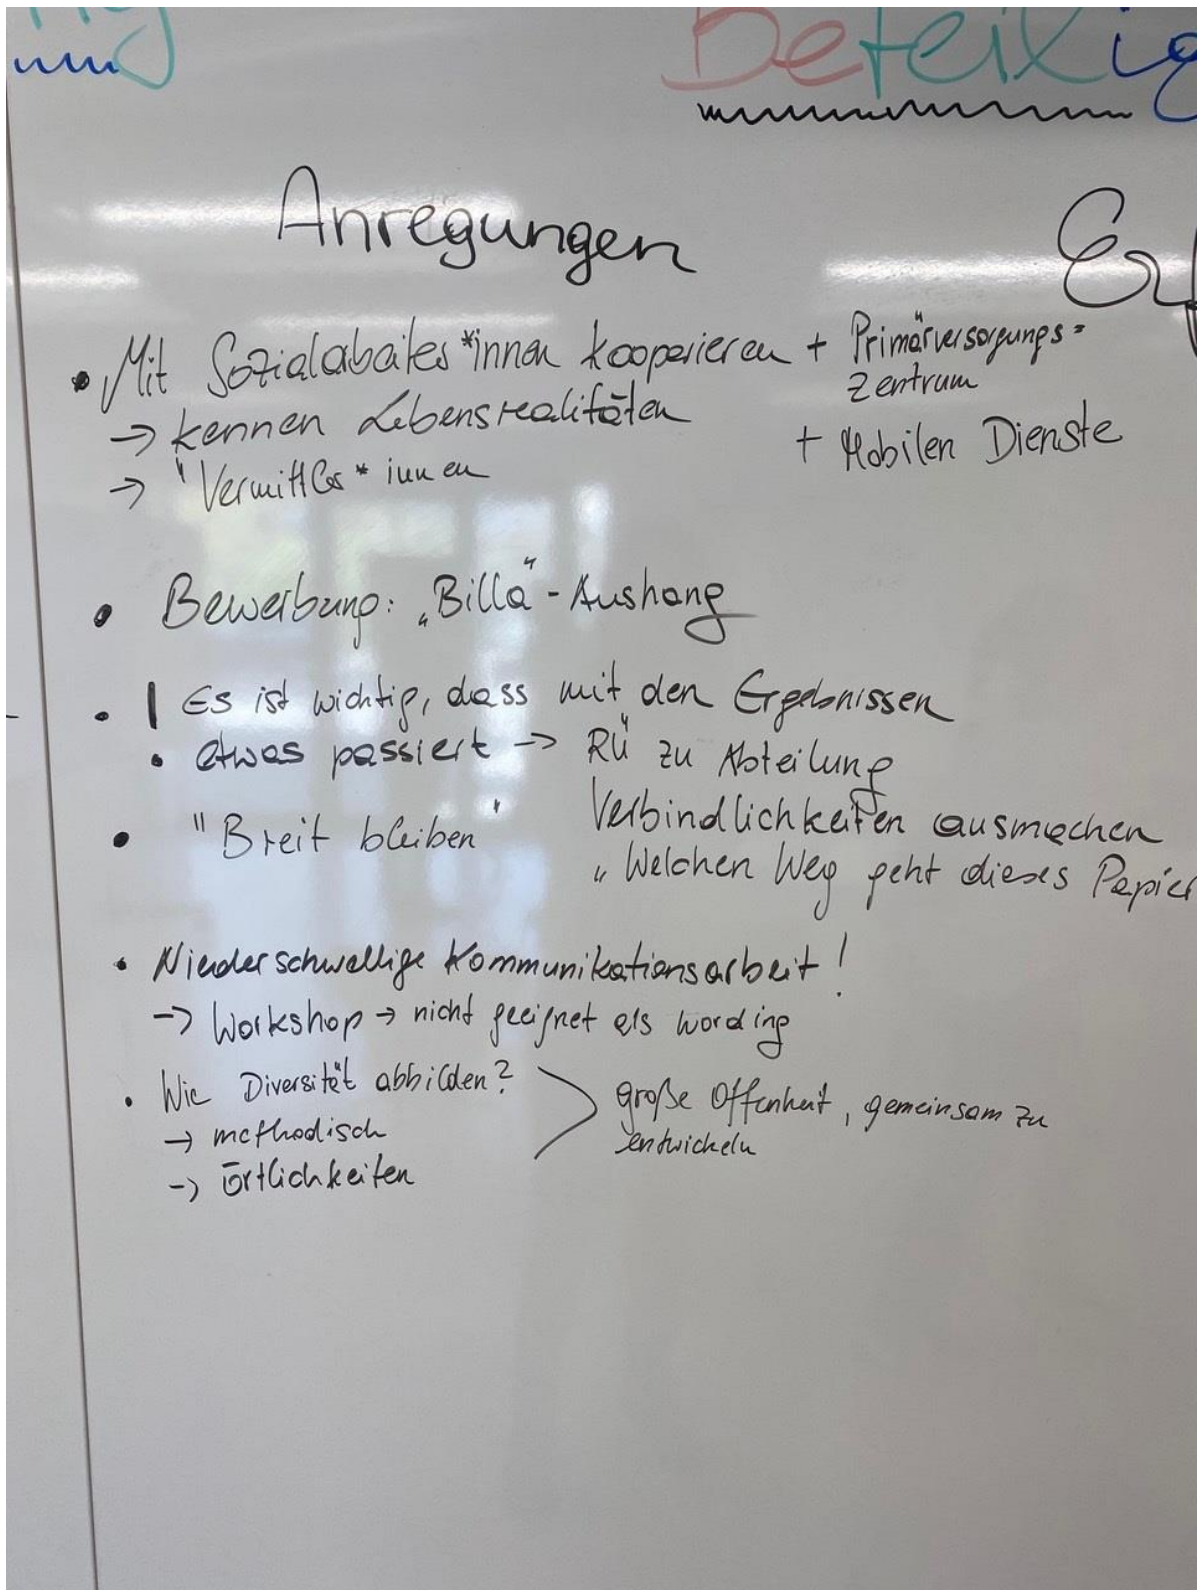 Beteilig
Anregungen
• Mit Sozialarbeiter*innen kooperieren + Primärversorgungs=
zentrum
→ kennen Lebensrealitäten
+ Mobilen Dienste
→ "Vermittler*innen
• Bewerbung: „Billa“-Aushang
• ! Es ist wichtig, dass mit den Ergebnissen
• etwas passiert → RÜ zu Abteilung
Verbindlichkeiten ausmachen
• "Breit bleiben"
„Welchen Weg geht dieses Papier
• Niederschwellige Kommunikationsarbeit!
→ Workshop → nicht geeignet als wording
• Wie Diversität abbilden?
→ methodisch
→ örtlichkeiten
große Offenheit, gemeinsam zu
entwickeln